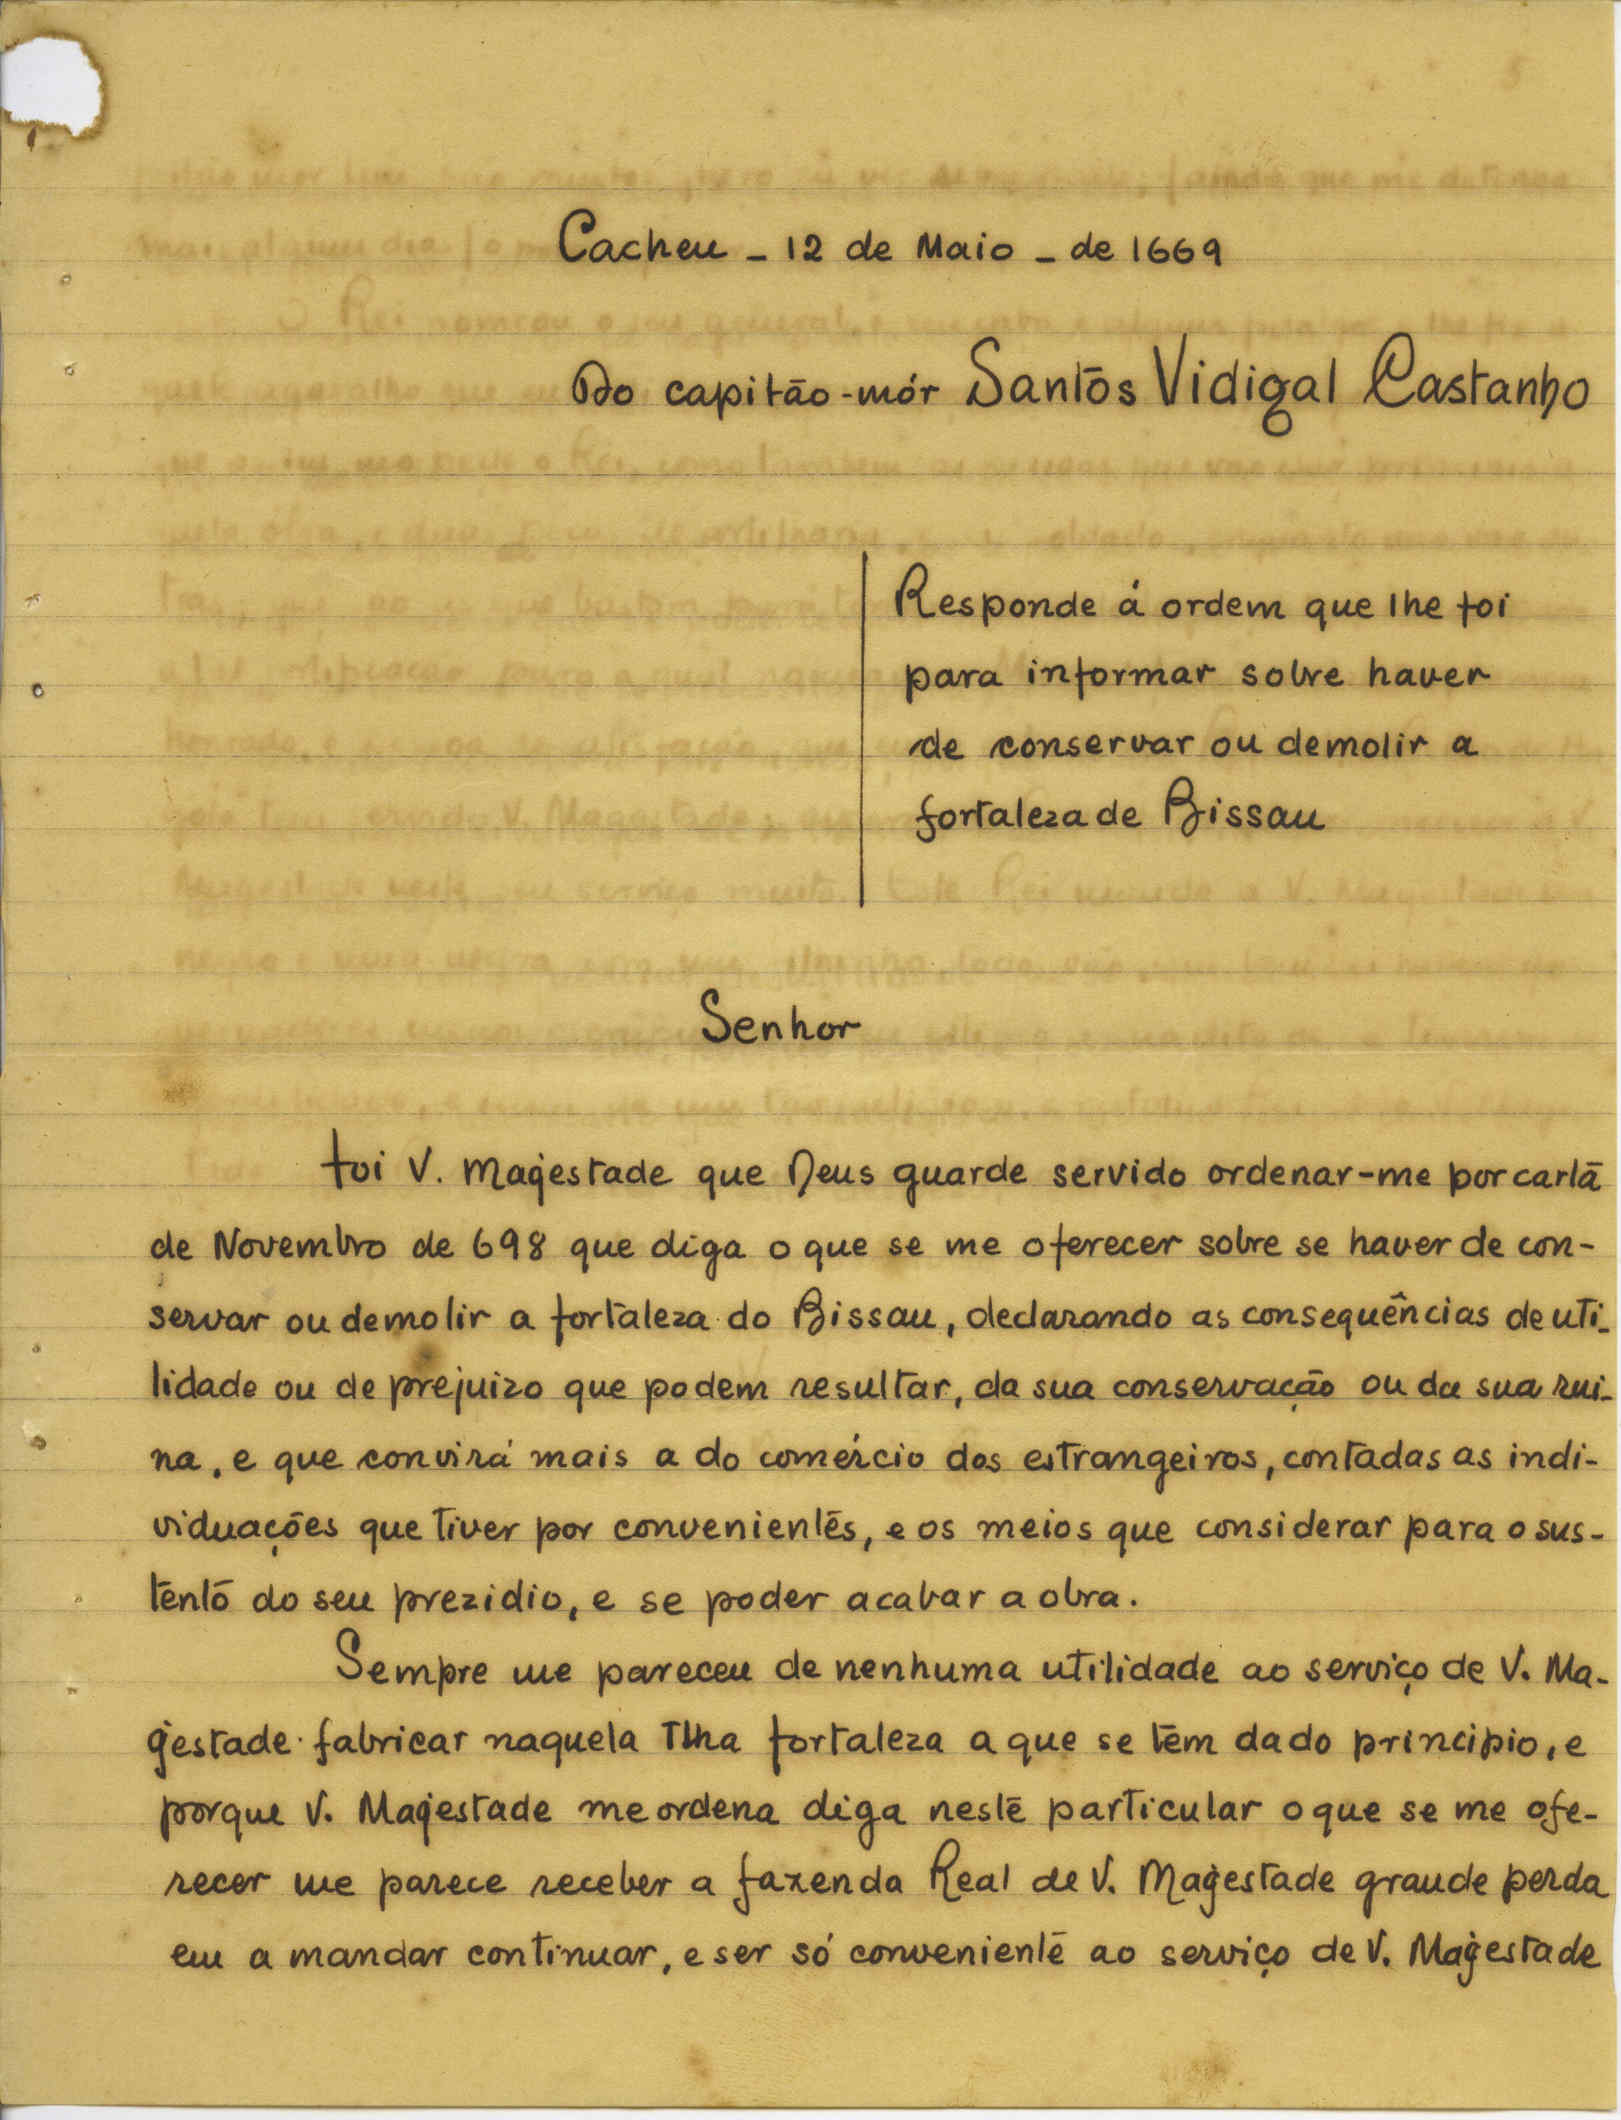 Cacheu - 12 de Maio - de 1669
Do capitão-mór Santos Vidigal Castanho
Responde á ordem que lhe foi
para informar sobre haver
de conservar ou demolir a
fortaleza de Bissau
Senhor
foi V. Magestade que Deus guarde servido ordenar-me por carta
de Novembro de 698 que diga o que se me oferecer sobre se haver de con-
servar ou demolir a fortaleza do Bissau, declarando as consequências de uti-
lidade ou de prejuizo que podem resultar, da sua conservação ou da sua rui-
na, e que convirá mais a do comércio dos estrangeiros, contadas as indi-
viduações que tiver por convenientes, e os meios que considerar para o sus-
tento do seu prezidio, e se poder acabar a obra.
Sempre me pareceu de nenhuma utilidade ao serviço de V. Ma-
gestade fabricar naquela Ilha fortaleza a que se tem dado principio, e
porque V. Magestade me ordena diga neste particular o que se me ofe-
recer me parece receber a fazenda Real de V. Magestade grande perda
em a mandar continuar, e ser só conveniente ao serviço de V. Magestade